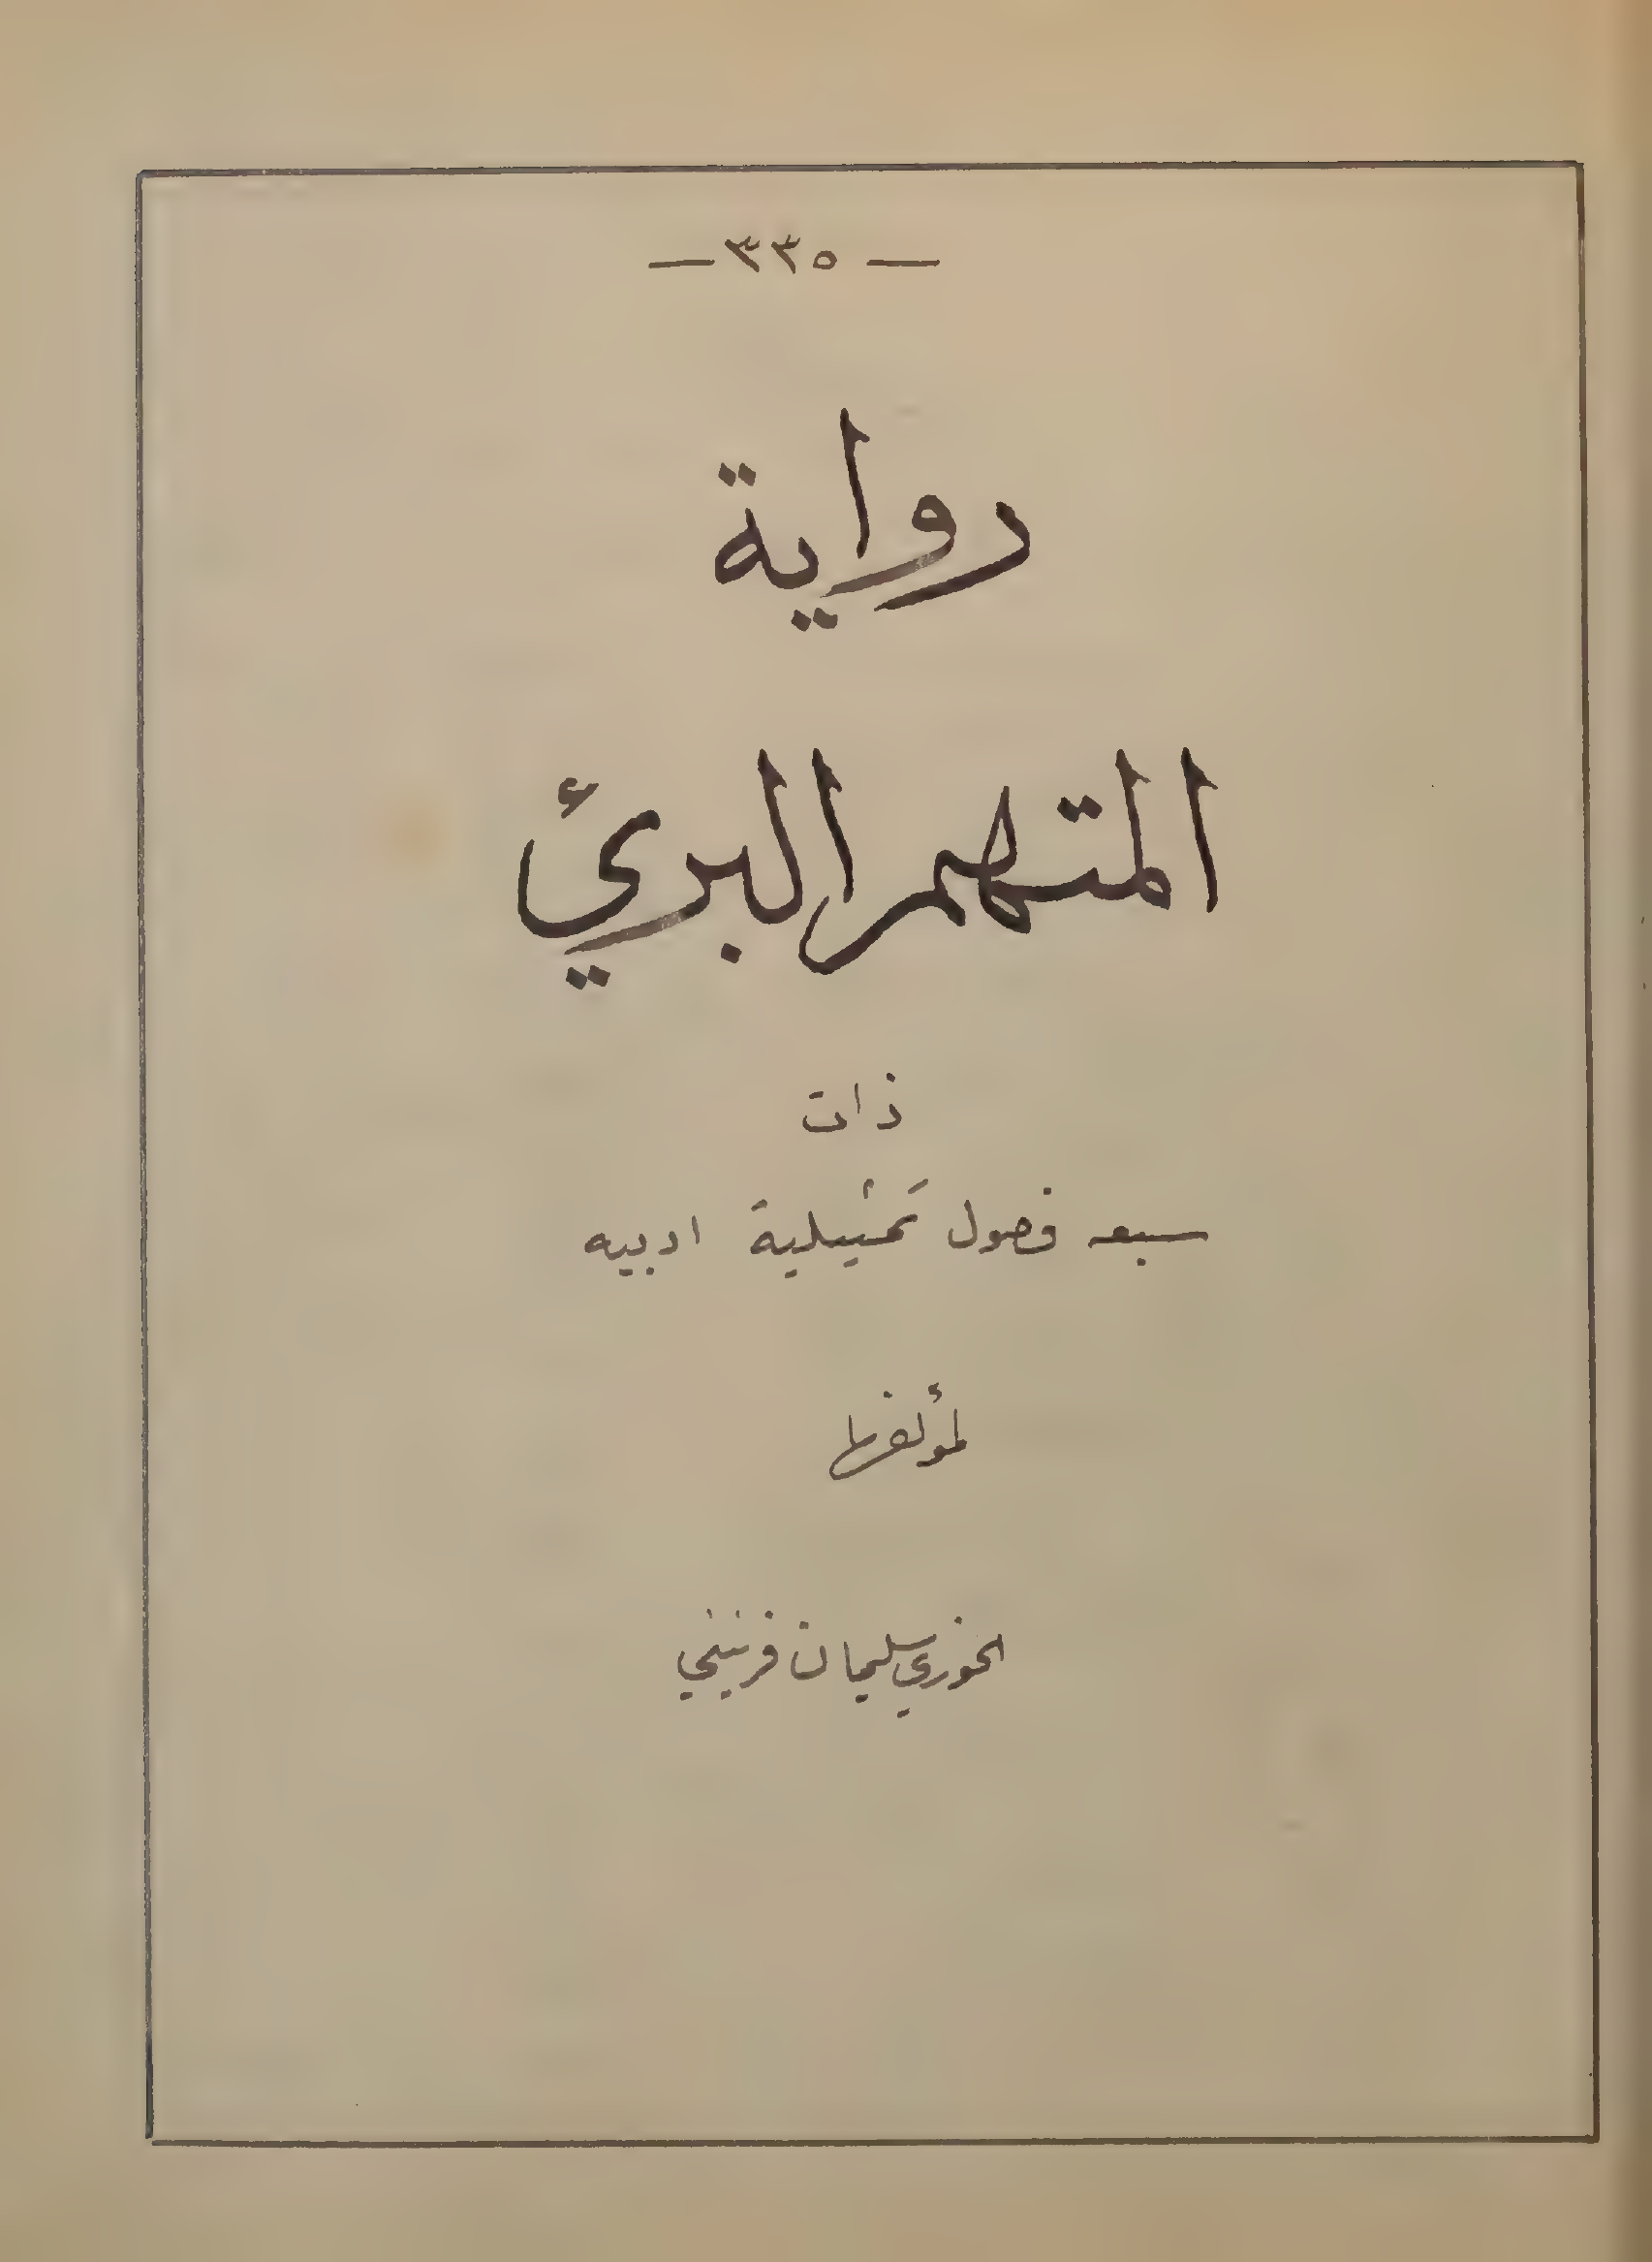 — ٣٣٥ —
رواية
المتهم البرئ
ذات
سبعه فصول تمثيلية ادبيه
لمؤلفها
الخوري سليمان فرنيني